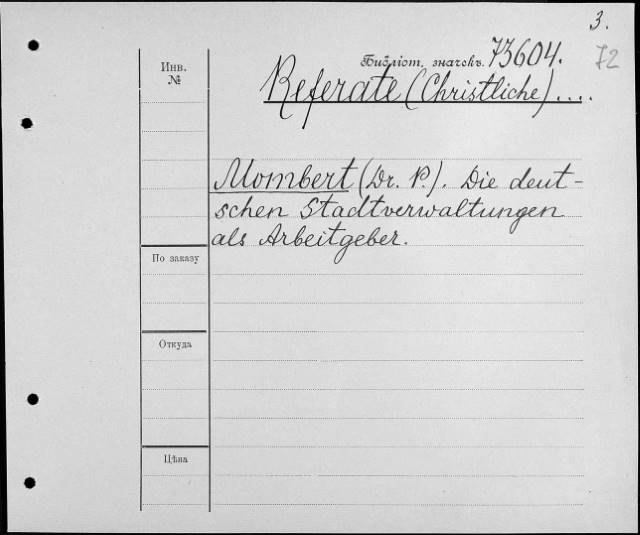 3.
Библіот. значекъ 73604. 72
Инв.
№
Referate (Christliche)....
Mombert (Dr. P.). Die deut-
schen Stadtverwaltungen
als Arbeitgeber.
По заказу
Откуда
Цѣна